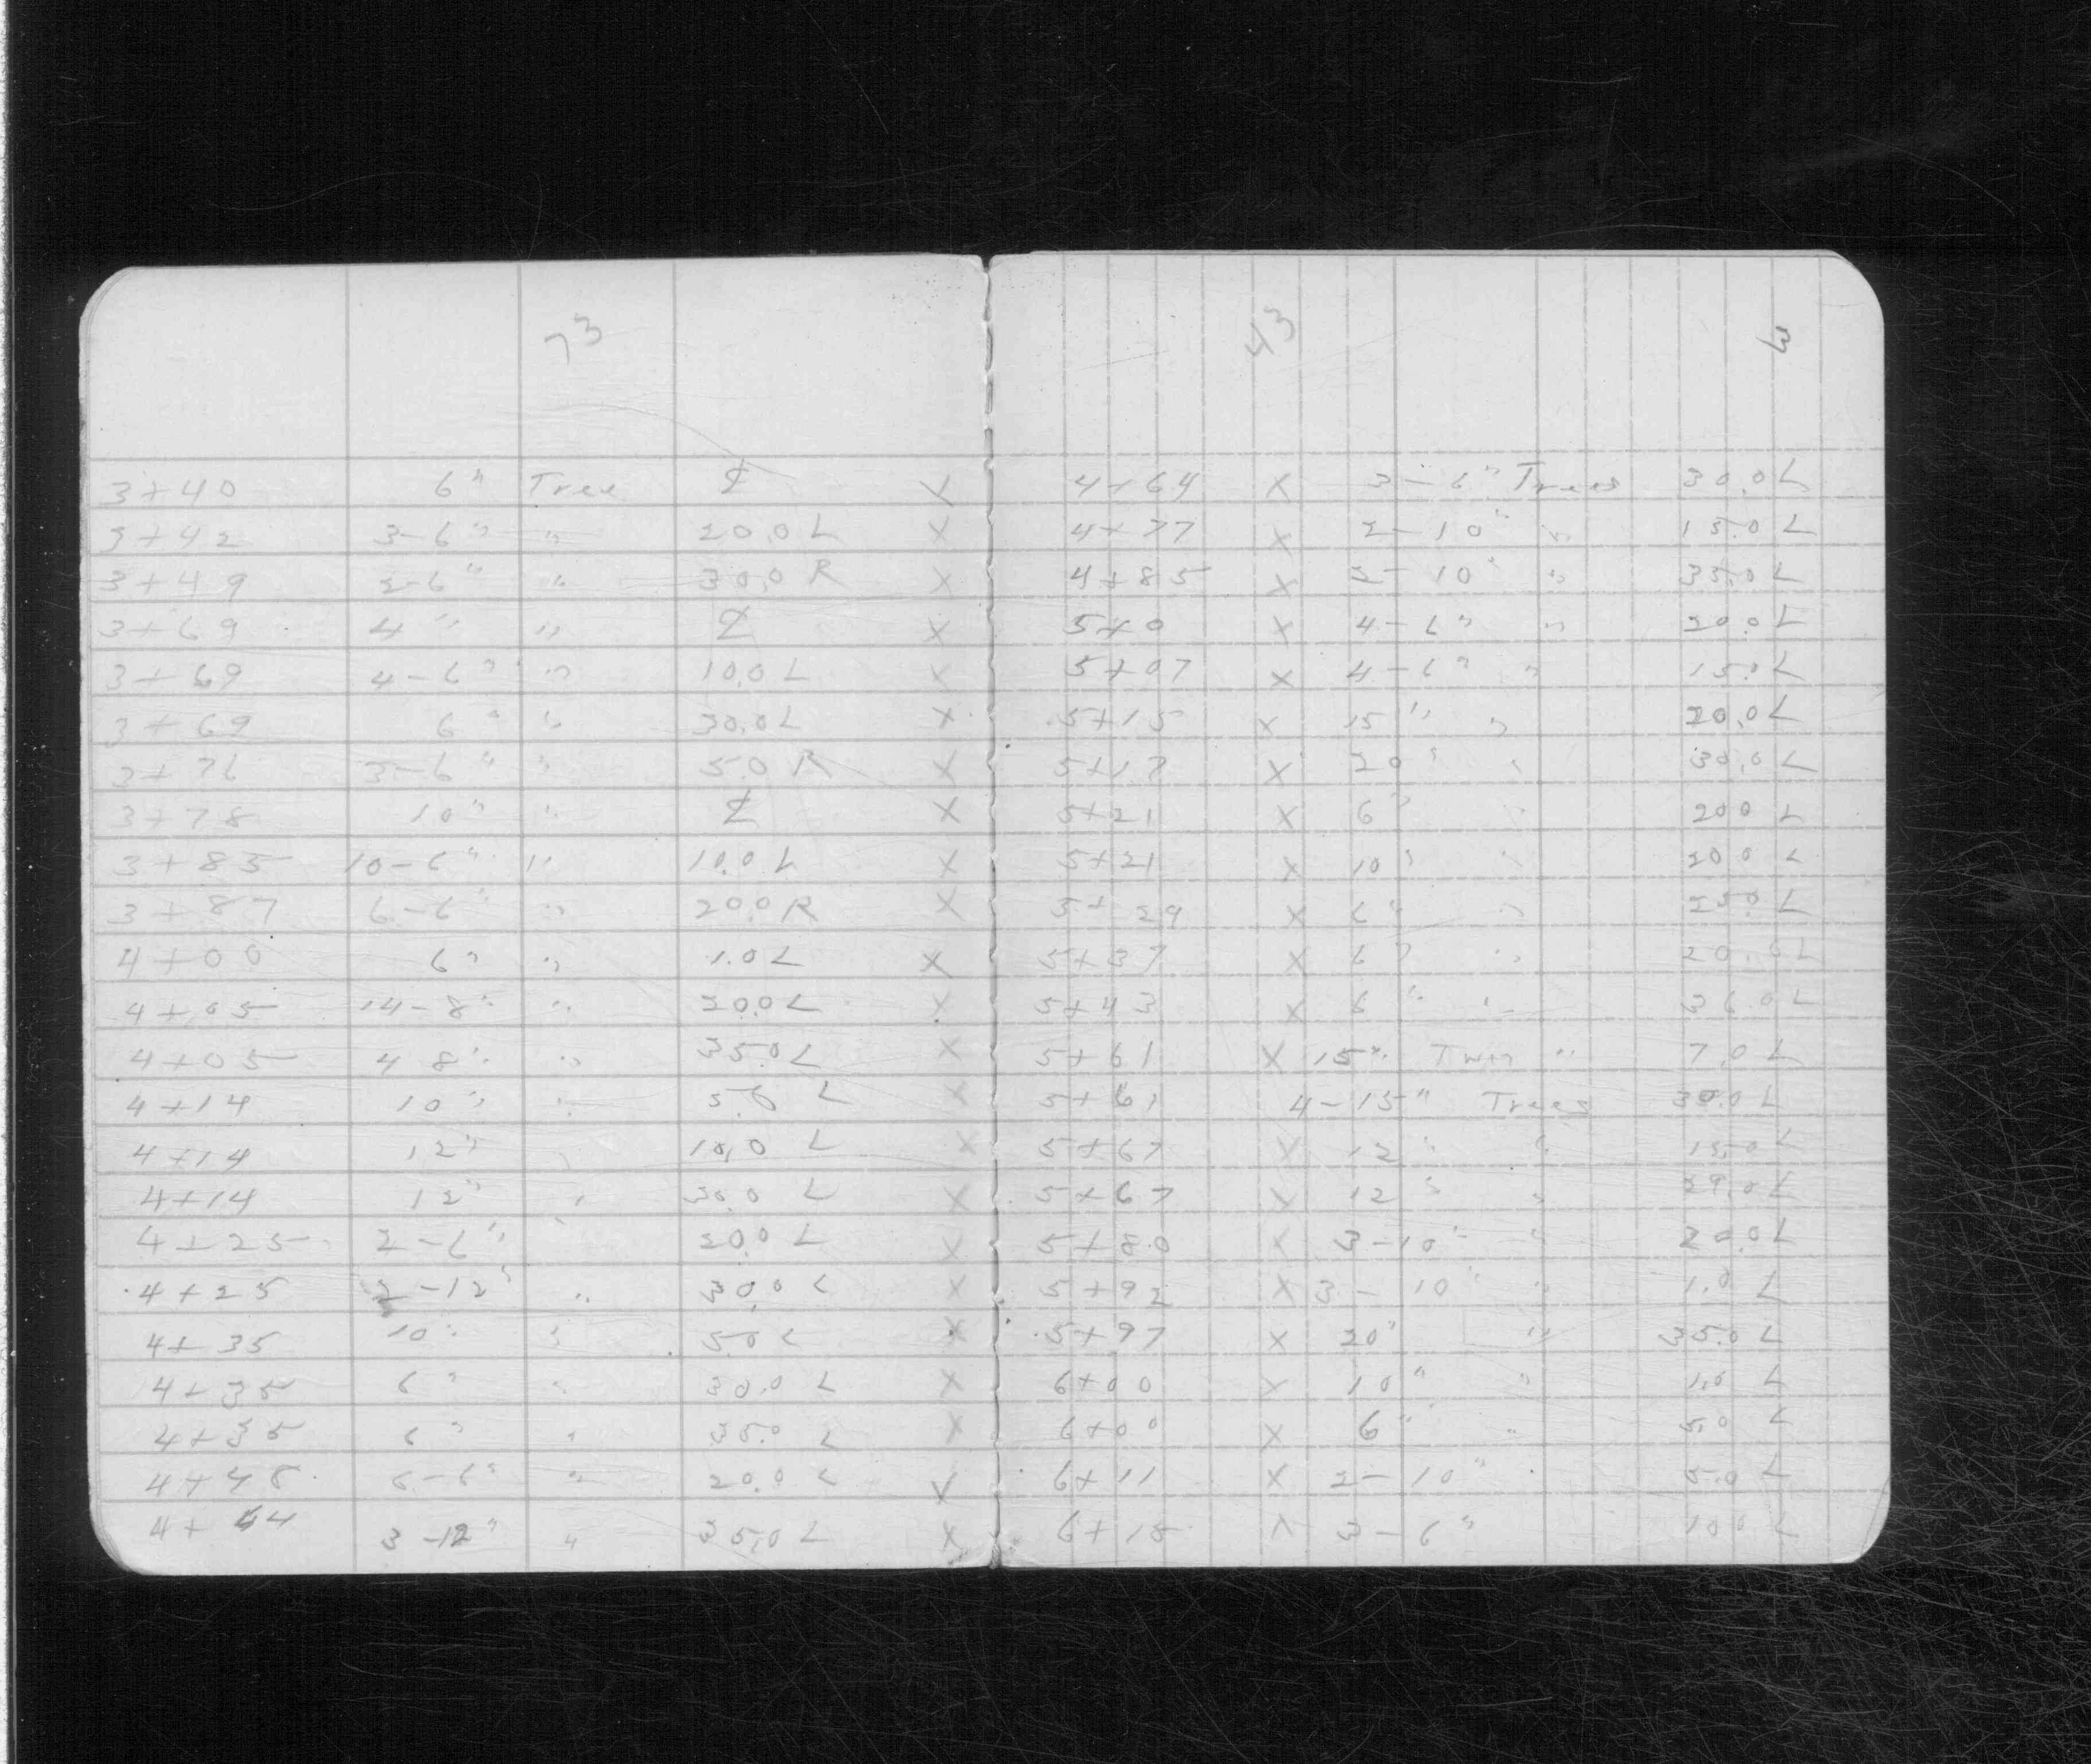 73
3+40 6" Tree ℄ X
3+42 3-6" " 20.0 L X
3+49 2-6" " 30.0 R X
3+69 4" " ℄ X
3+69 4-6" " 10.0 L X
3+69 6" " 30.0 L X
3+76 3-6" " 5.0 R X
3+78 10" " ℄ X
3+85 10-6" " 10.0 L X
3+87 6-6" " 20.0 R X
4+00 6" " 1.0 L X
4+05 14-8" " 20.0 L X
4+05 4 8" " 35.0 L X
4+14 10" " 5.0 L X
4+14 12" " 10.0 L X
4+14 12" " 30.0 L X
4+25 2-6" " 20.0 L X
4+25 2-12" " 30.0 L X
4+35 10" " 5.0 L X
4+35 6" " 30.0 L X
4+35 6" " 35.0 L X
4+48 6-6" " 20.0 L X
4+44 3-12" " 35.0 L X
43 3
4+64 X 3-6" Trees 30.0 L
4+77 X 2-10" " 15.0 L
4+85 X 2-10" " 35.0 L
5+0 X 4-6" " 20.0 L
5+07 X 4-6" " 15.0 L
5+15 X 15" " 20.0 L
5+17 X 20" " 30.0 L
5+21 X 6" " 20 0 L
5+21 X 10" " 20 0 L
5+29 X 6" " 25.0 L
5+37 X 6" " 20.0 L
5+43 X 6" " 36.0 L
5+61 X 15" Twin " 7.0 L
5+61 4-15" Trees 30.0 L
5+67 X 12" " 15.0 L
5+67 X 12" " 29.0 L
5+80 X 3-10" " 20.0 L
5+92 X 3-10" " 1.0 L
5+97 X 20" " 35.0 L
6+00 X 10" " 1.0 L
6+00 X 6" " 5.0 L
6+11 X 2-10" " 5.0 L
6+18 X 3-6" 10 0 L